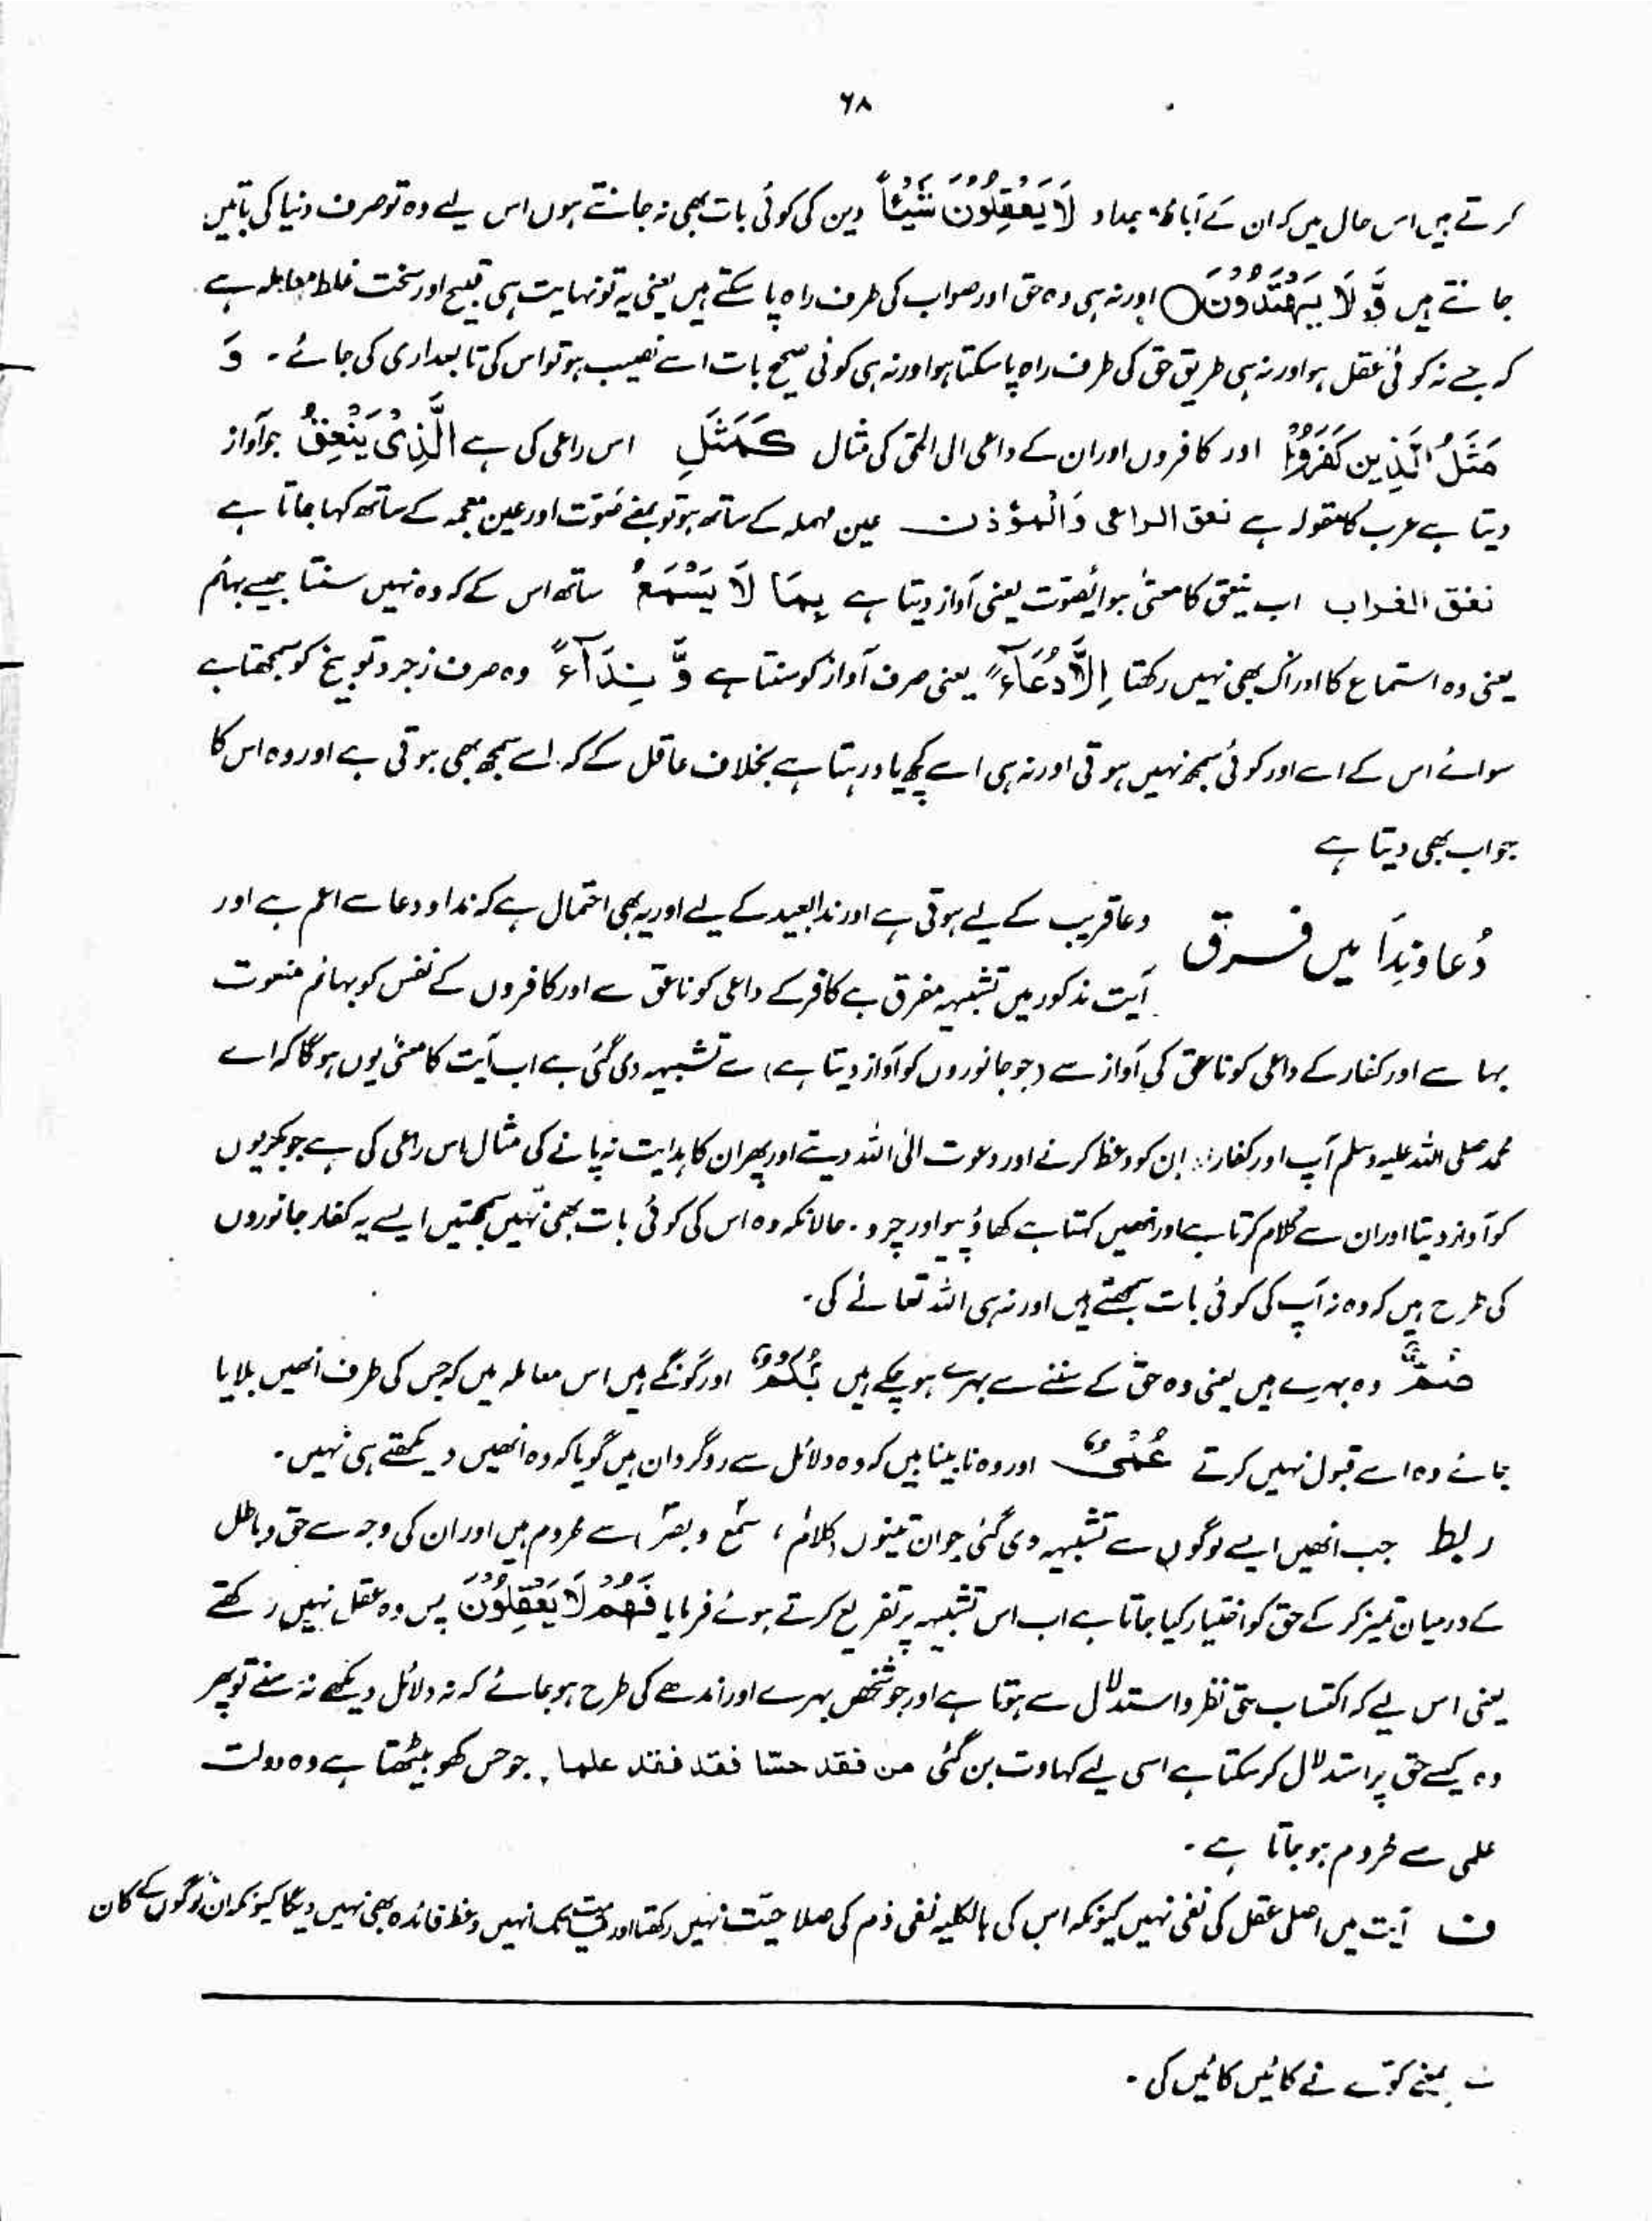 ۶۸
کرتے ہیں اس حال میں کہ ان کے آباؤ اجداد لَا يَعْقِلُوْنَ شَيْئًا دین کی کوئی بات بھی نہ جانتے ہوں اس لیے وہ تو صرف دنیا کی باتیں
جانتے ہیں وَّ لَا يَهْتَدُوْنَ○ اور نہ ہی وہ حق اور صواب کی طرف راہ پا سکتے ہیں یعنی یہ تو نہایت ہی قبیح اور سخت غلط معاملہ ہے
کہ جسے نہ کوئی عقل ہو اور نہ ہی طریق حق کی طرف راہ پا سکتا ہو اور نہ ہی کوئی صحیح بات اسے نصیب ہو تو اس کی تابعداری کی جائے۔ وَ
مَثَلُ الَّذِيْنَ كَفَرُوْا اور کافروں اور ان کے داعی الی الحق کی مثال كَمَثَلِ اس راعی کی ہے الَّذِیْ يَنْعِقُ جو آواز
دیتا ہے عرب کا مقولہ ہے نعق الراعی وَالمؤذن عین مہملہ کے ساتھ ہو تو بمعنے صَوَّت اور عین معجمہ کے ساتھ کہا جاتا ہے
نغق الغراب اب ینعق کا معنیٰ ہوا یُصَوِّت یعنی آواز دیتا ہے بِمَا لَا يَسْمَعُ ساتھ اس کے کہ وہ نہیں سنتا جیسے بہائم
یعنی وہ استماع کا ادراک بھی نہیں رکھتا اِلَّا دُعَآءً یعنی صرف آواز کو سنتا ہے وَّ نِدَآءً وہ صرف زجر و توبیخ کو سمجھتا ہے
سوائے اس کے اسے اور کوئی سمجھ نہیں ہوتی اور نہ ہی اسے کچھ یاد رہتا ہے بخلاف عاقل کے کہ اسے سمجھ بھی ہوتی ہے اور وہ اس کا
جواب بھی دیتا ہے
دُعا و نِدَا میں فرق دعا قریب کے لیے ہوتی ہے اور ندا بعید کے لیے اور یہ بھی احتمال ہے کہ ندا و دعا سے اعم ہے اور
آیت مذکور میں تشبیہہ مفرق ہے کافر کے داعی کو ناعق سے اور کافروں کے نفس کو بہائم منعوت
بہا سے اور کفار کے داعی کو ناعق کی آواز سے (جو جانوروں کو آواز دیتا ہے) سے تشبیہہ دی گئی ہے اب آیت کا معنیٰ یوں ہوگا کہ اے
محمد صلی اللہ علیہ وسلم آپ اور کفار ان کو وعظ کرنے اور دعوت الی اللہ دیتے اور پھر ان کا ہدایت نہ پانے کی مثال اس راعی کی ہے جو بکریوں
کو آواز دیتا اور ان سے کلام کرتا ہے اور انھیں کہتا ہے کھاؤ پیو اور چرو۔ حالانکہ وہ اس کی کوئی بات بھی نہیں سمجھتیں ایسے یہ کفار جانوروں
کی طرح ہیں کہ وہ نہ آپ کی کوئی بات سمجھتے ہیں اور نہ ہی اللہ تعالےٰ کی۔
صُمٌّۢ وہ بہرے ہیں یعنی وہ حق کے سننے سے بہرے ہو چکے ہیں بُكْمٌ اور گونگے ہیں اس معاملہ میں کہ جس کی طرف انھیں بلایا
جائے وہ اسے قبول نہیں کرتے عُمْیٌ اور وہ نابینا ہیں کہ وہ دلائل سے روگردان ہیں گویا کہ وہ انھیں دیکھتے ہی نہیں۔
ربط جب انھیں ایسے لوگوں سے تشبیہہ دی گئی جو ان تینوں (کلام، سمع و بصر) سے محروم ہیں اور ان کی وجہ سے حق و باطل
کے درمیان تمیز کر کے حق کو اختیار کیا جاتا ہے اب اس تشبیہہ پر تفریع کرتے ہوئے فرمایا فَهُمْ لَا يَعْقِلُوْنَ پس وہ عقل نہیں رکھتے
یعنی اس لیے کہ اکتساب حق نظر و استدلال سے ہوتا ہے اور جو شخص بہرے اور اندھے کی طرح ہو جائے کہ نہ دلائل دیکھے نہ سنے تو پھر
وہ کیسے حق پر استدلال کر سکتا ہے اسی لیے کہاوت بن گئی من فقد حسّا فقد فقد علما۔ جو حس کھو بیٹھتا ہے وہ دولت
علمی سے محروم ہو جاتا ہے۔
ف آیت میں اصلی عقل کی نفی نہیں کیونکہ اس کی بالکلیہ نفی ذم کی صلاحیّت نہیں رکھتا اور انہیں وعظ فائدہ بھی نہیں دیگا کیونکہ ان لوگوں کے کان
بمعنے کوّے نے کائیں کائیں کی۔